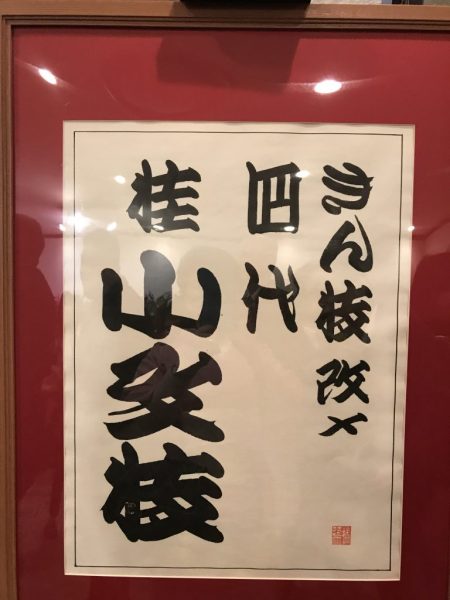 きん枝改メ
四代
桂小文枝